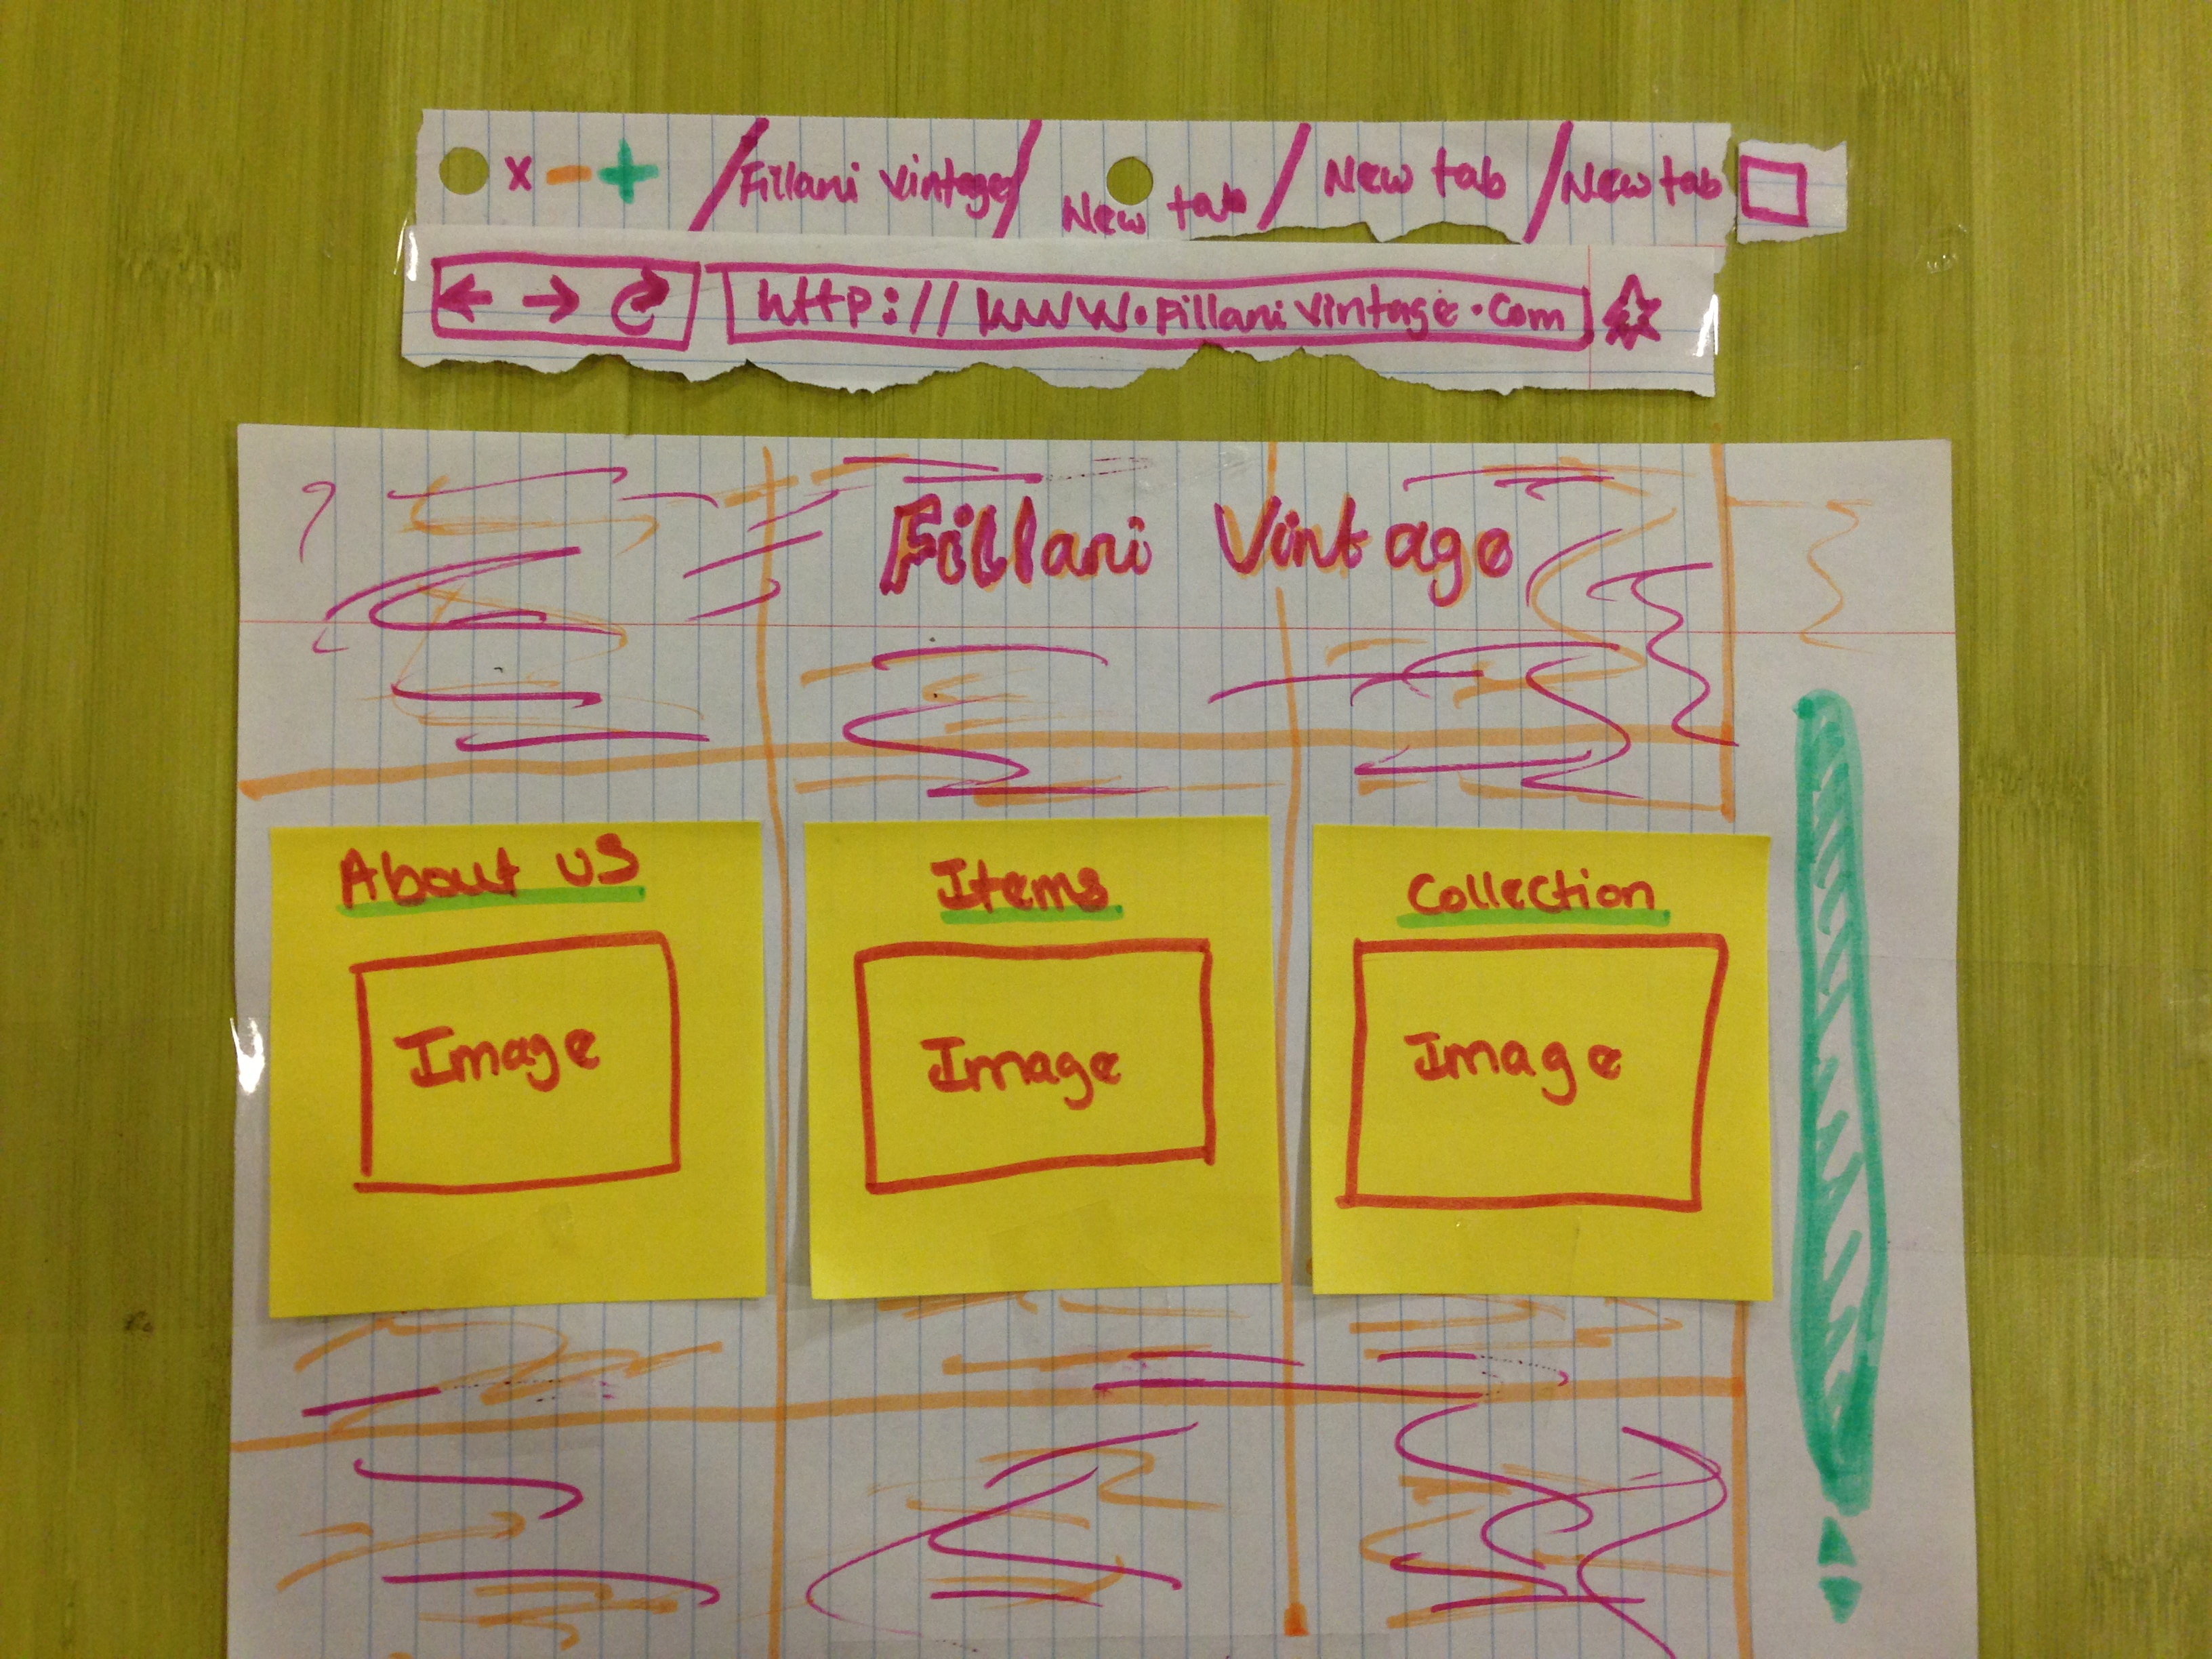 x - + / Fillani Vintage / New tab / New tab / New tab
http://www.Fillanivintage.com
Fillani Vintage
About us
Items
Collection
Image
Image
Image